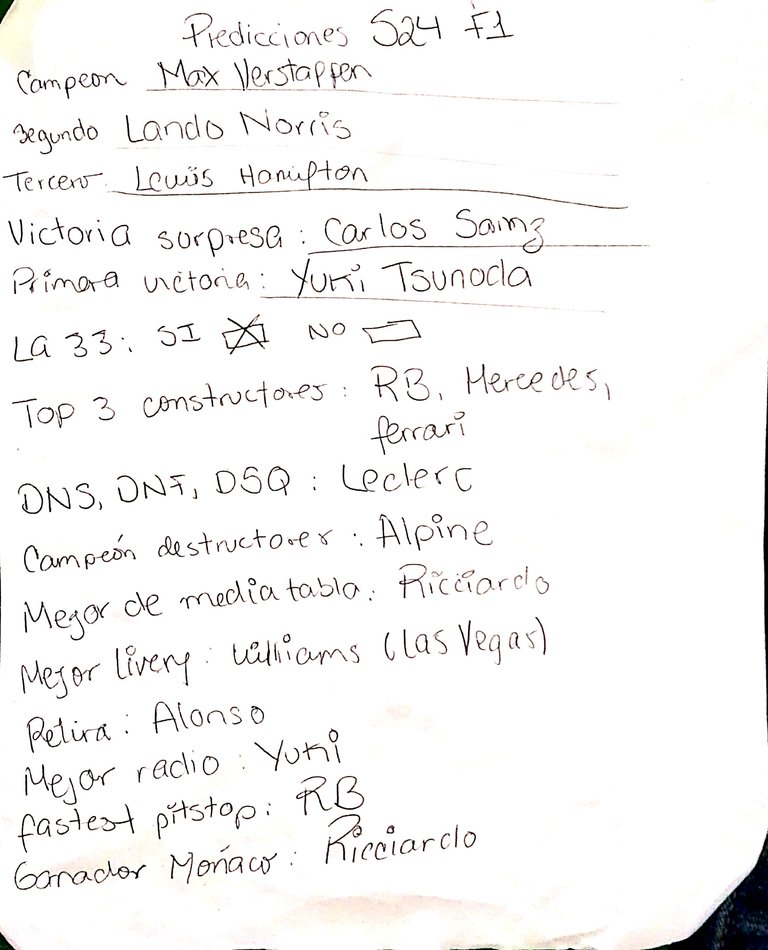 Predicciones S24 F1
Campeon Max Verstappen
Segundo Lando Norris
Tercero Lewis Hamilton
Victoria sorpresa: Carlos Sainz
Primera victoria: Yuki Tsunoda
LA 33: SI NO
Top 3 constructores: RB, Mercedes,
ferrari
DNS, DNF, DSQ: Leclerc
Campeón destructores: Alpine
Mejor de media tabla: Ricciardo
Mejor livery: Williams (Las Vegas)
Retira: Alonso
Mejor radio: Yuki
fastest pitstop: RB
Ganador Mónaco: Ricciardo